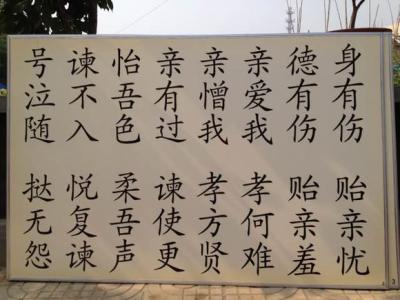 身有伤 贻亲忧
德有伤 贻亲羞
亲爱我 孝何难
亲憎我 孝方贤
亲有过 谏使更
怡吾色 柔吾声
谏不入 悦复谏
号泣随 挞无怨